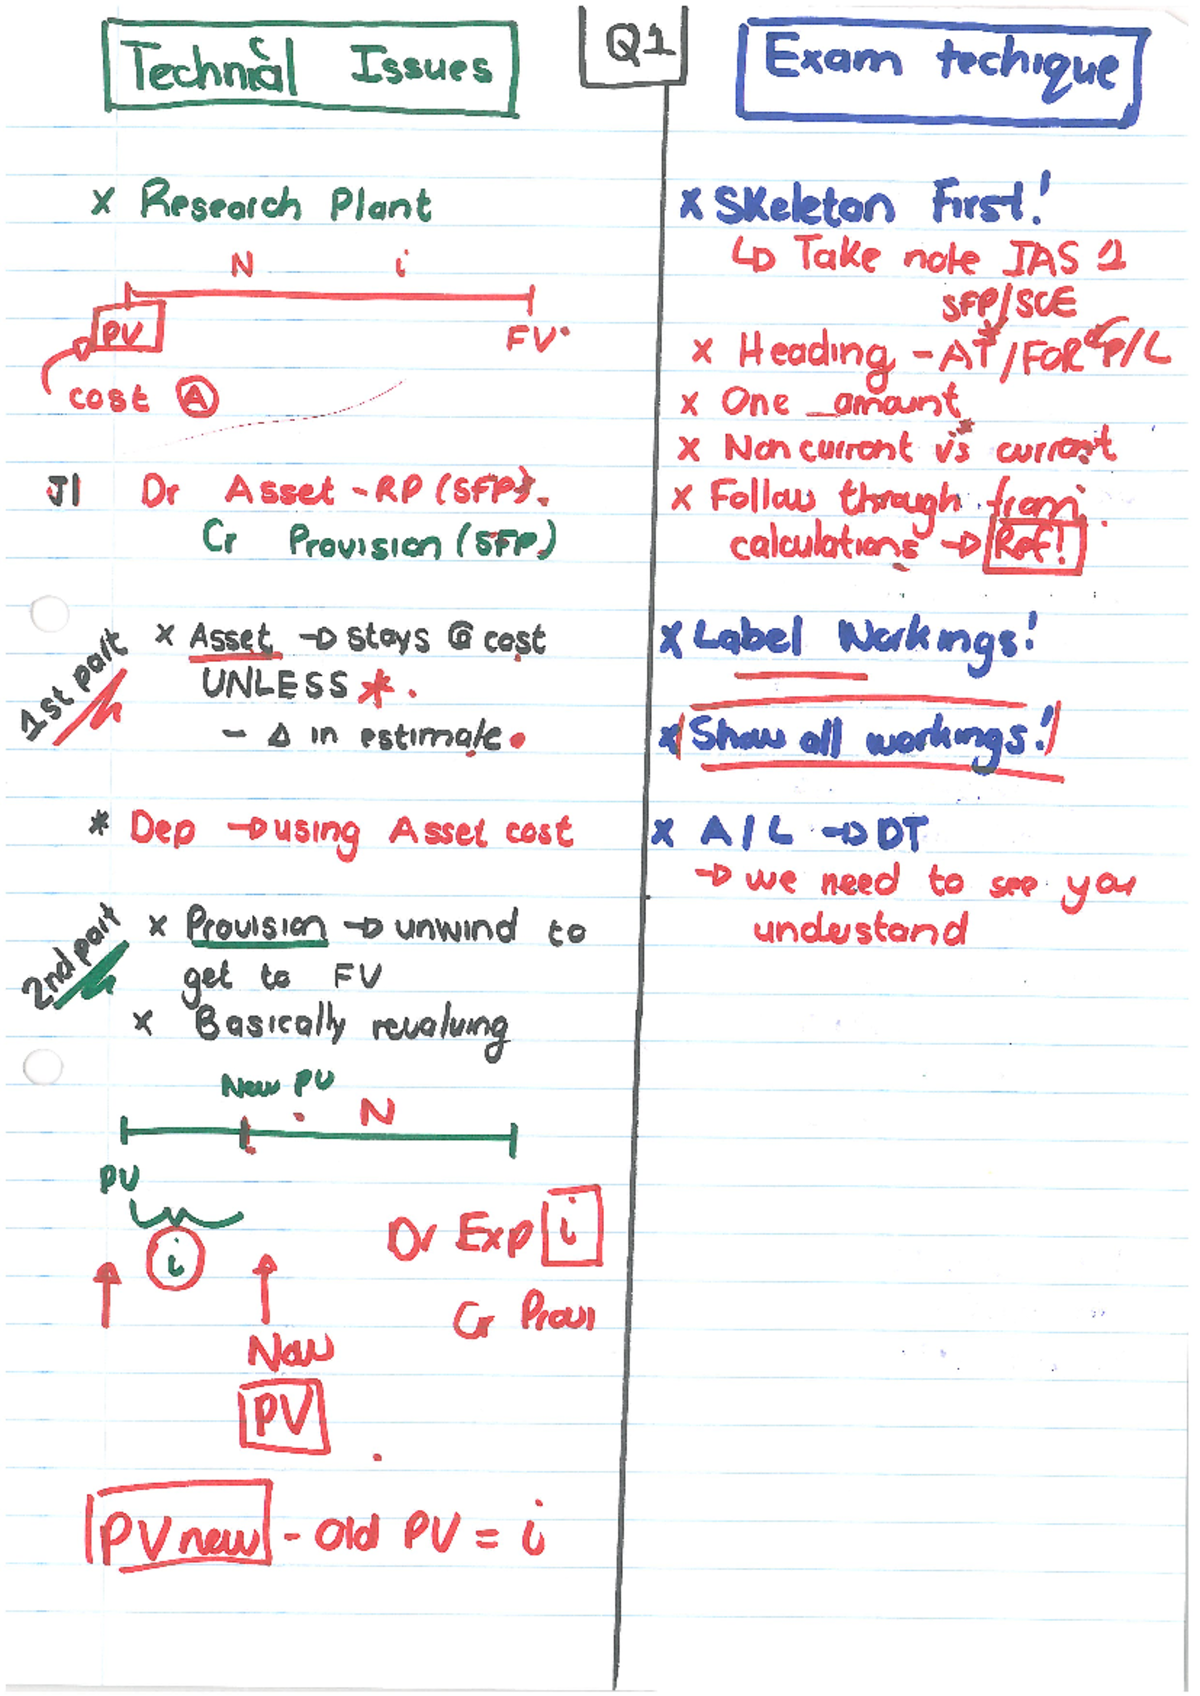 Technical Issues
Q1
Exam techique
x Research Plant
N i
PV
FV
cost A
J1 Dr Asset - RP (SFP).
Cr Provision (SFP)
1st part
x Asset → stays @ cost
UNLESS *.
- Δ in estimate.
* Dep → using Asset cost
2nd part
x Provision → unwind to
get to FV
x Basically revaluing
New PV
N
PV
i
Dr Exp i
Cr Provi
New
PV
PV new - old PV = i
x Skeleton First!
↳ Take note IAS 1
SFP/SCE
x Heading - AT*/FOR P/L
x One amount
x Non current vs current
x Follow through from
calculations → Ref!
x Label Workings!
x Show all workings!
x A/L → DT
→ we need to see you
understand